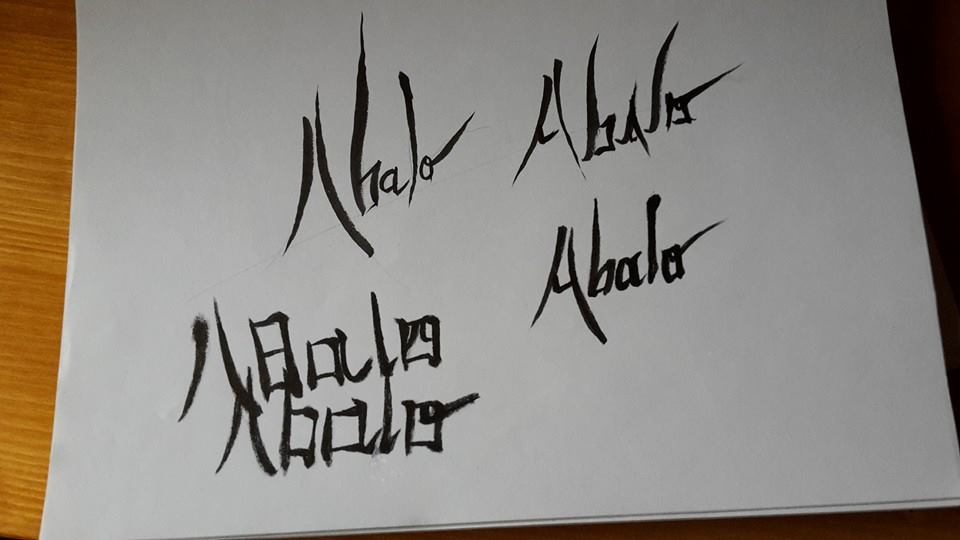 Abalo
Abalo
Abalo
ABalo
Abalo